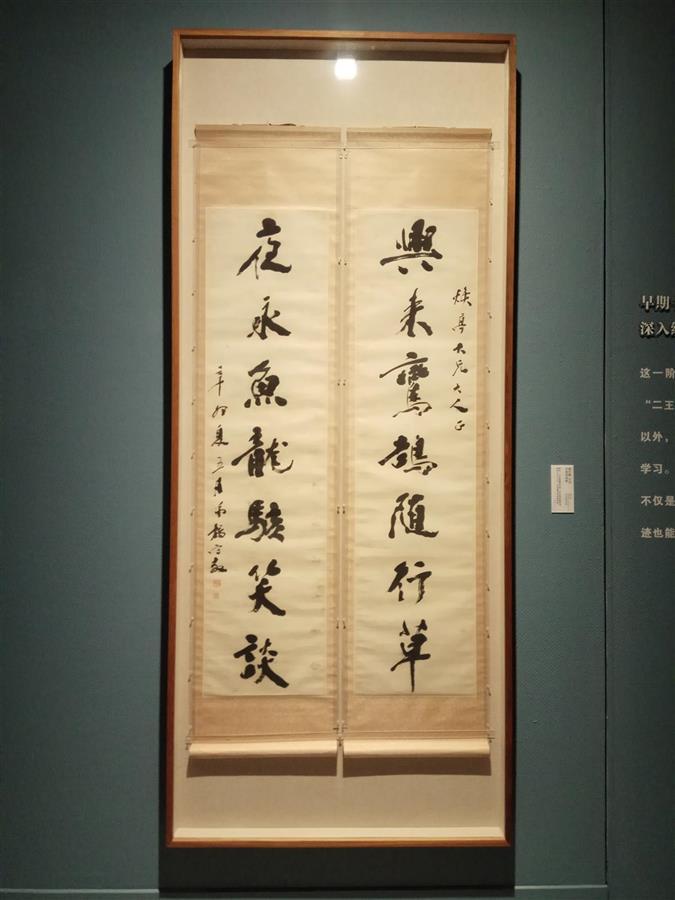 煥亭大兄大人正
興來鸞鵠隨行草
夜永魚龍駭笑談
辛卯夏五月弟楊守敬
早期
深入
这一阶
“二王
以外，
学习。
不仅是
迹也能